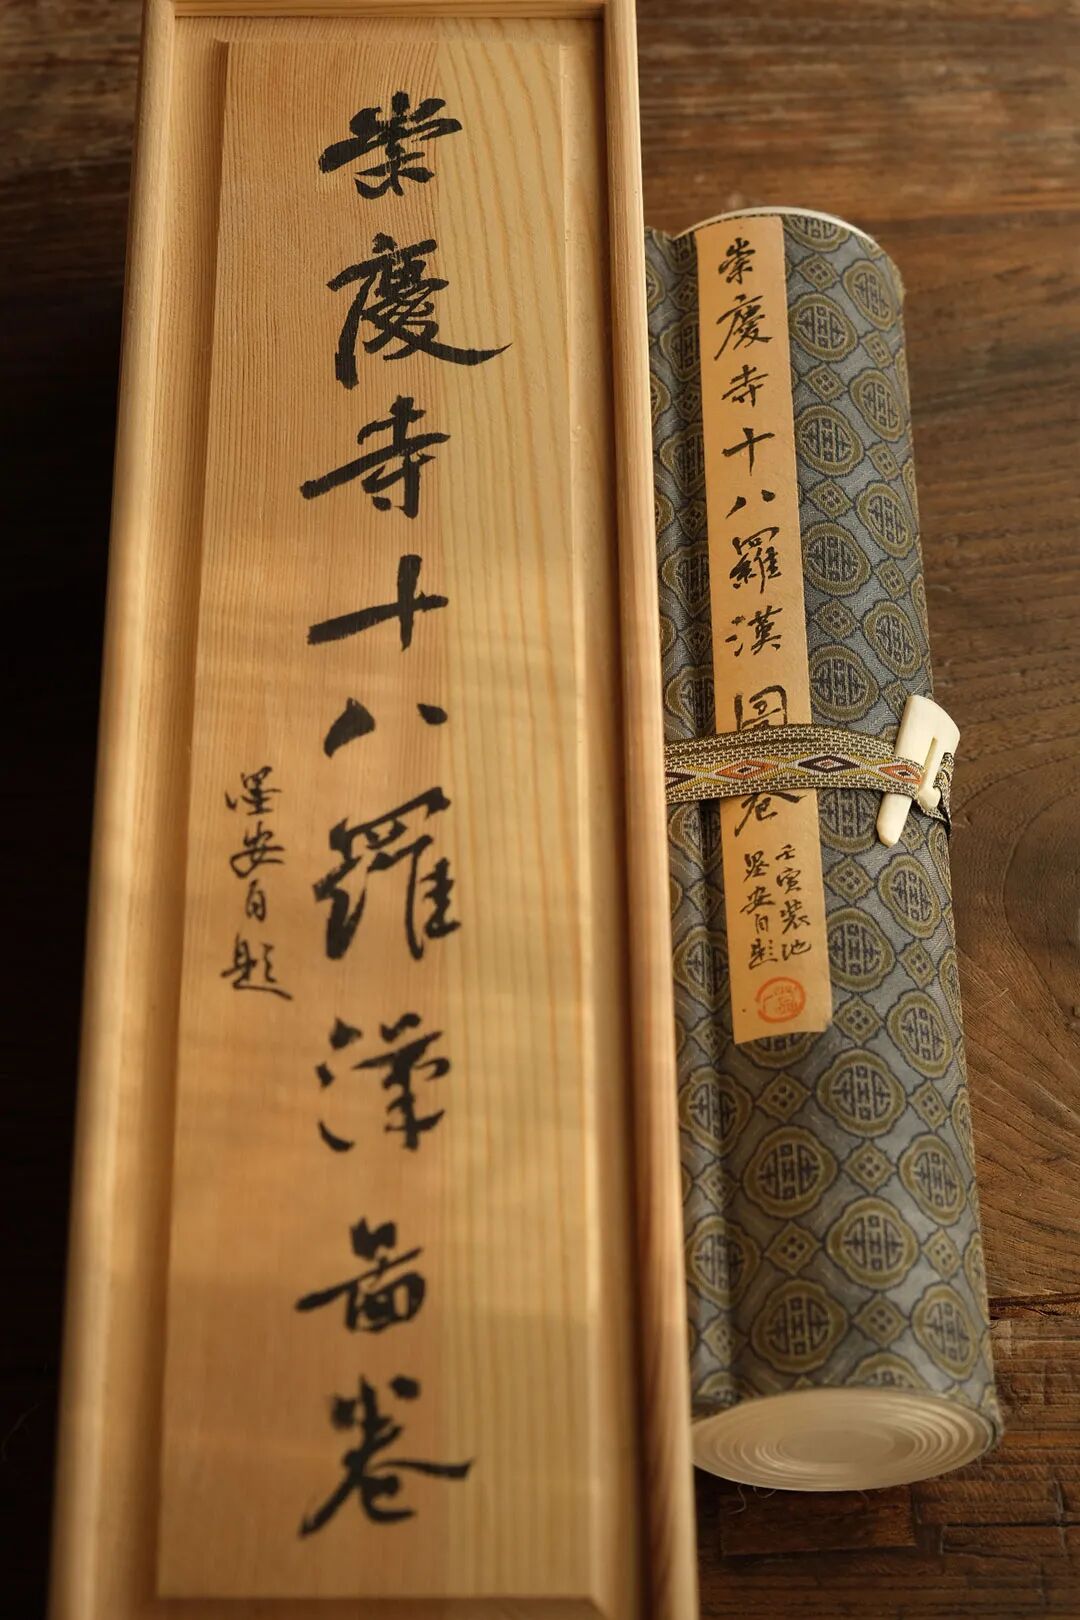 崇慶寺十八羅漢圖卷
墨安自題
崇慶寺十八羅漢圖卷
壬寅裝池
墨安自題